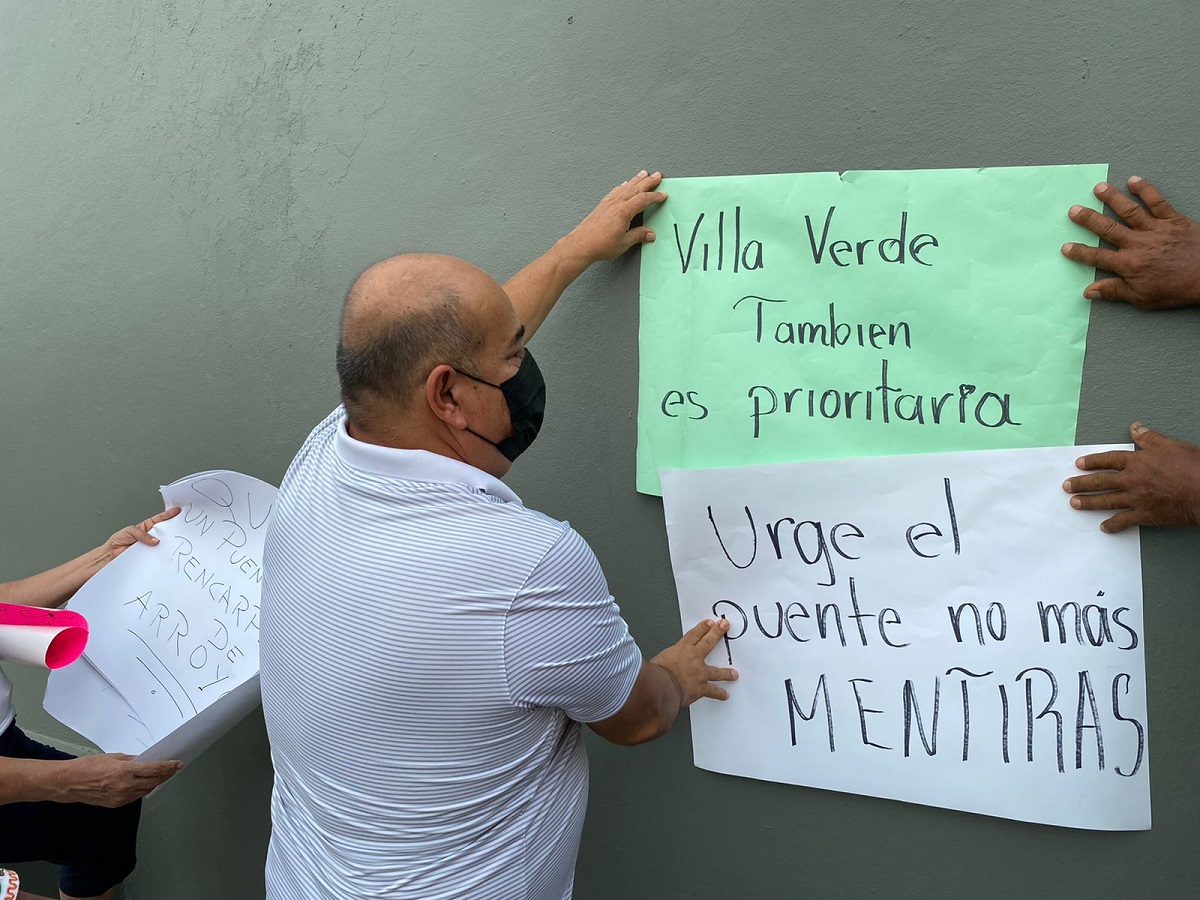 Villa Verde
Tambien
es prioritaria
Urge el
puente no más
MENTIRAS
QU
UN PUEN
RENCART
ARROY DE